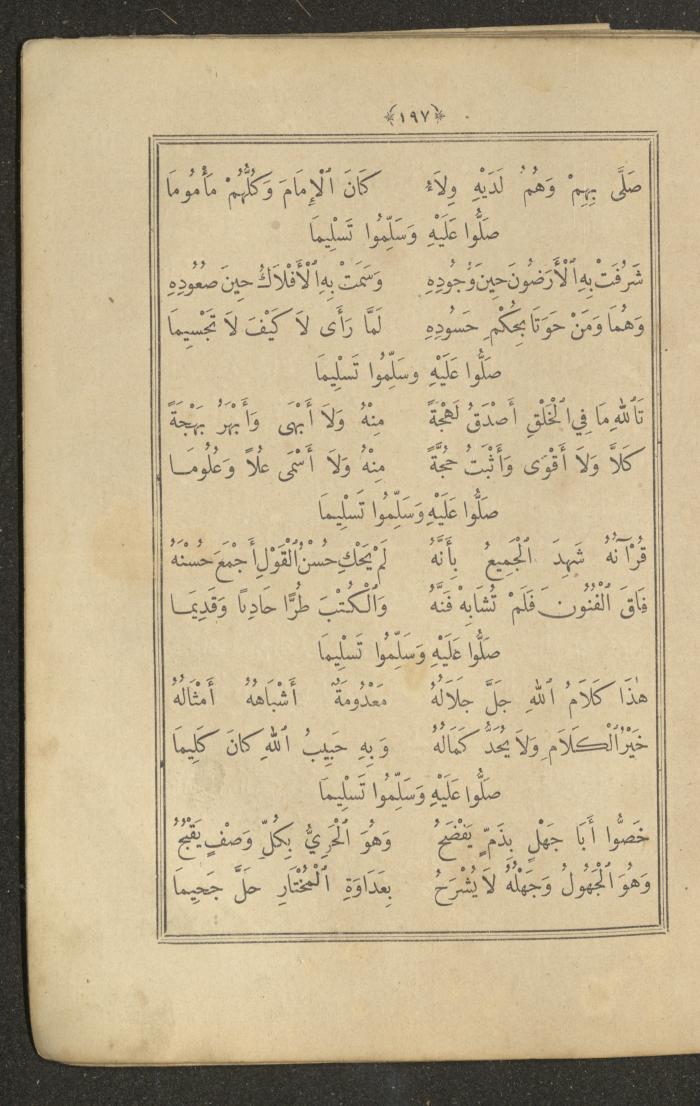 ﴿١٩٧﴾
صَلَّى بِهِمْ وَهُمُ لَدَيْهِ وِلَاءُ كَانَ ٱلْإِمَامَ وَكُلُّهُمْ مَأْمُومَا
صَلُّوا عَلَيْهِ وَسَلِّمُوا تَسْلِيمَا
شَرُفَتْ بِهِ ٱلْأَرَضُونَ حِينَ وُجُودِهِ وَسَمَتْ بِهِ ٱلْأَفْلَاكُ حِينَ صُعُودِهِ
وَهُمَا وَمَنْ حَوَتَا بِحُكْمِ حَسُودِهِ لَمَّا رَأَى لَا كَيْفَ لَا تَجْسِيمَا
صَلُّوا عَلَيْهِ وسَلِّمُوا تَسْلِيمَا
تَٱللهِ مَا فِي ٱلْخَلْقِ أَصْدَقُ لَهْجَةً مِنْهُ وَلَا أَبْهَى وَأَبْهَرُ بَهْجَةً
كَلَّا وَلَا أَقْوَى وَأَثْبَتُ حُجَّةً مِنْهُ وَلَا أَسْمَى عُلاً وَعُلُومَا
صَلُّوا عَلَيْهِ وَسَلِّمُوا تَسْلِيمَا
قُرْآنُهُ شَهِدَ ٱلْجَمِيعُ بِأَنَّهُ لَمْ يَحْكِ حُسْنُ ٱلْقَوْلِ أَجْمَعَ حُسْنَهُ
فَاقَ ٱلْفُنُونَ فَلَمْ تُشَابِهْ فَنَّهُ وَٱلْكُتْبَ طُرًّا حَادِثًا وَقَدِيمَا
صَلُّوا عَلَيْهِ وَسَلِّمُوا تَسْلِيمَا
هٰذَا كَلَامُ ٱللهِ جَلَّ جَلَالُهُ مَعْدُومَةٌ أَشْبَاهُهُ أَمْثَالُهُ
خَيْرُ ٱلْكَلَامِ وَلَا يُحَدُّ كَمَالُهُ وَبِهِ حَبِيبُ ٱللهِ كَانَ كَلِيمَا
صَلُّوا عَلَيْهِ وَسَلِّمُوا تَسْلِيمَا
خَصُّوا أَبَا جَهْلٍ بِذَمٍّ يَفْضَحُ وَهُوَ ٱلْحَرِيُّ بِكُلِّ وَصْفٍ يَقْبُحُ
وَهُوَ ٱلْجَهُولُ وَجَهْلُهُ لَا يُشْرَحُ بِعَدَاوَةِ ٱلْمُخْتَارِ حَلَّ جَحِيمَا